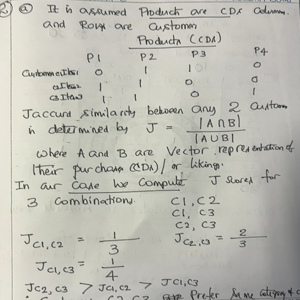 2) a) It is assumed Products are CDs Columns
and Rows are Customers
Products (CDs)
P1 P2 P3 P4
Customer 0 1 1 0
0 1 0 0
1 1 0 1
Jaccard similarity between any 2 Customers
is determined by J = |A∩B| / |A∪B|
where A and B are Vector representation of
their purchase (CDs) / or likings.
In our Case we Compute J scores for
3 Combinations. C1, C2
C1, C3
C2, C3
J C1,C2 = 1/3 J C2,C3 = 2/3
J C1,C3 = 1/4
J C2,C3 > J C1,C2 > J C1,C3
Prefer Same